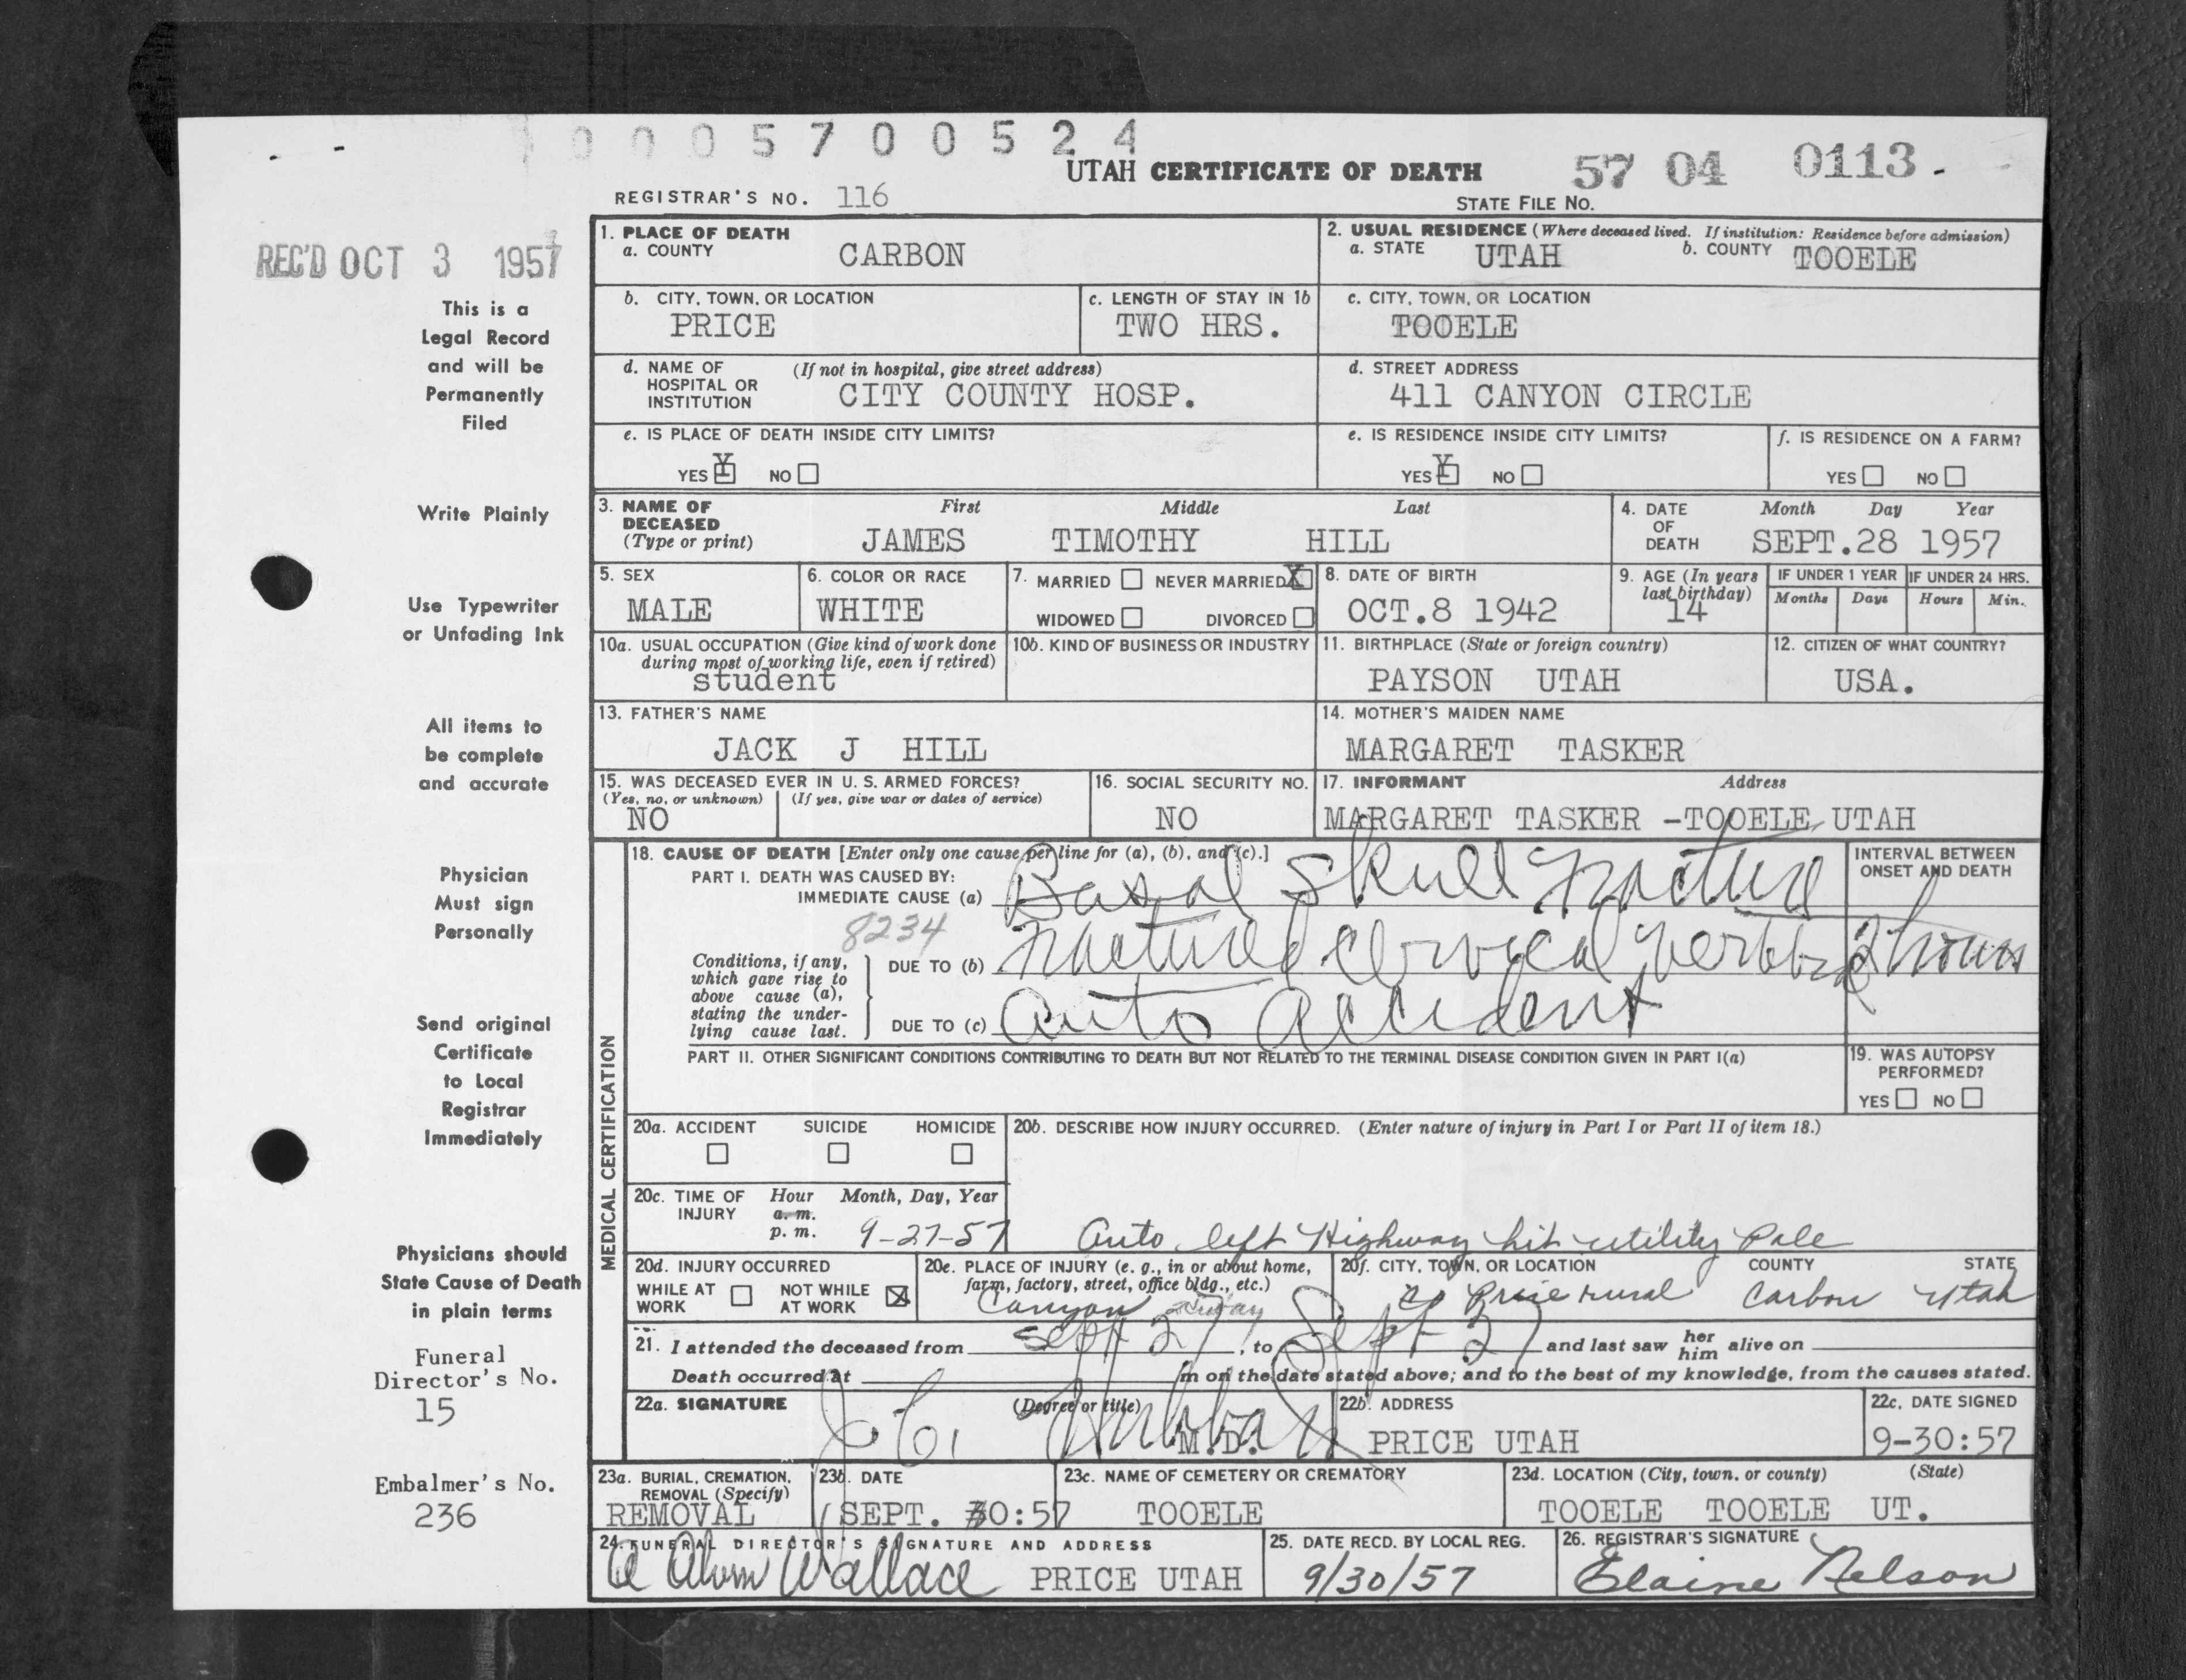 0005700524
UTAH CERTIFICATE OF DEATH 57 04 0113
REGISTRAR'S NO. 116
STATE FILE NO.
REC'D OCT 3 1957
This is a
Legal Record
and will be
Permanently
Filed
Write Plainly
Use Typewriter
or Unfading Ink
All items to
be complete
and accurate
Physician
Must sign
Personally
Send original
Certificate
to Local
Registrar
Immediately
Physicians should
State Cause of Death
in plain terms
Funeral
Director's No.
15
Embalmer's No.
236
1. PLACE OF DEATH
a. COUNTY CARBON
2. USUAL RESIDENCE (Where deceased lived. If institution: Residence before admission)
a. STATE UTAH b. COUNTY TOOELE
b. CITY, TOWN, OR LOCATION
PRICE
c. LENGTH OF STAY IN 1b
TWO HRS.
c. CITY, TOWN, OR LOCATION
TOOELE
d. NAME OF HOSPITAL OR INSTITUTION (If not in hospital, give street address)
CITY COUNTY HOSP.
d. STREET ADDRESS
411 CANYON CIRCLE
e. IS PLACE OF DEATH INSIDE CITY LIMITS?
YES NO
e. IS RESIDENCE INSIDE CITY LIMITS?
YES NO
f. IS RESIDENCE ON A FARM?
YES NO
3. NAME OF DECEASED (Type or print)
First Middle Last
JAMES TIMOTHY HILL
4. DATE OF DEATH Month Day Year
SEPT.28 1957
5. SEX
MALE
6. COLOR OR RACE
WHITE
7. MARRIED NEVER MARRIED X
WIDOWED DIVORCED
8. DATE OF BIRTH
OCT.8 1942
9. AGE (In years last birthday)
14
IF UNDER 1 YEAR IF UNDER 24 HRS.
Months Days Hours Min.
10a. USUAL OCCUPATION (Give kind of work done during most of working life, even if retired)
student
10b. KIND OF BUSINESS OR INDUSTRY
11. BIRTHPLACE (State or foreign country)
PAYSON UTAH
12. CITIZEN OF WHAT COUNTRY?
USA.
13. FATHER'S NAME
JACK J HILL
14. MOTHER'S MAIDEN NAME
MARGARET TASKER
15. WAS DECEASED EVER IN U. S. ARMED FORCES?
(Yes, no, or unknown) (If yes, give war or dates of service)
NO
16. SOCIAL SECURITY NO.
NO
17. INFORMANT Address
MARGARET TASKER -TOOELE UTAH
MEDICAL CERTIFICATION
18. CAUSE OF DEATH [Enter only one cause per line for (a), (b), and (c).]
PART I. DEATH WAS CAUSED BY:
IMMEDIATE CAUSE (a) Basal Skull Fracture
INTERVAL BETWEEN ONSET AND DEATH
8234
Conditions, if any, which gave rise to above cause (a), stating the underlying cause last.
DUE TO (b) Fractured Cervical Vertebra 2 hours
DUE TO (c) Auto Accident
PART II. OTHER SIGNIFICANT CONDITIONS CONTRIBUTING TO DEATH BUT NOT RELATED TO THE TERMINAL DISEASE CONDITION GIVEN IN PART I(a)
19. WAS AUTOPSY PERFORMED?
YES NO
20a. ACCIDENT SUICIDE HOMICIDE
20b. DESCRIBE HOW INJURY OCCURRED. (Enter nature of injury in Part I or Part II of item 18.)
Auto left Highway hit utility Pole
20c. TIME OF INJURY Hour Month, Day, Year
a. m.
p. m. 9-27-57
20d. INJURY OCCURRED
WHILE AT WORK NOT WHILE AT WORK X
20e. PLACE OF INJURY (e. g., in or about home, farm, factory, street, office bldg., etc.)
Canyon
20f. CITY, TOWN, OR LOCATION COUNTY STATE
Price rural Carbon Utah
21. I attended the deceased from Sept 27, to Sept 27 and last saw her him alive on
Death occurred at m on the date stated above; and to the best of my knowledge, from the causes stated.
22a. SIGNATURE (Degree or title)
M.D.
22b. ADDRESS
PRICE UTAH
22c. DATE SIGNED
9-30:57
23a. BURIAL, CREMATION, REMOVAL (Specify)
REMOVAL
23b. DATE
SEPT. 30:57
23c. NAME OF CEMETERY OR CREMATORY
TOOELE
23d. LOCATION (City, town, or county) (State)
TOOELE TOOELE UT.
24. FUNERAL DIRECTOR'S SIGNATURE AND ADDRESS
Wallace PRICE UTAH
25. DATE RECD. BY LOCAL REG.
9/30/57
26. REGISTRAR'S SIGNATURE
Elaine Nelson